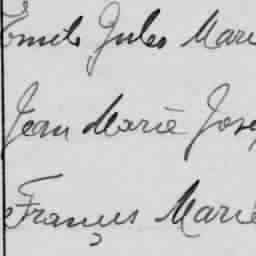 Emile Jules Mari
Jean Marie Jose
François Marie